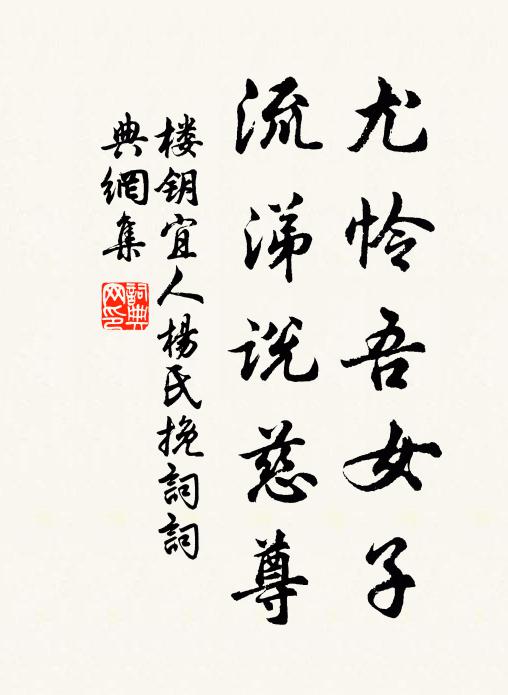 尤怜吾女子
流涕说慈尊
楼钥宜人杨氏挽詞詞
典網集
詞典网印